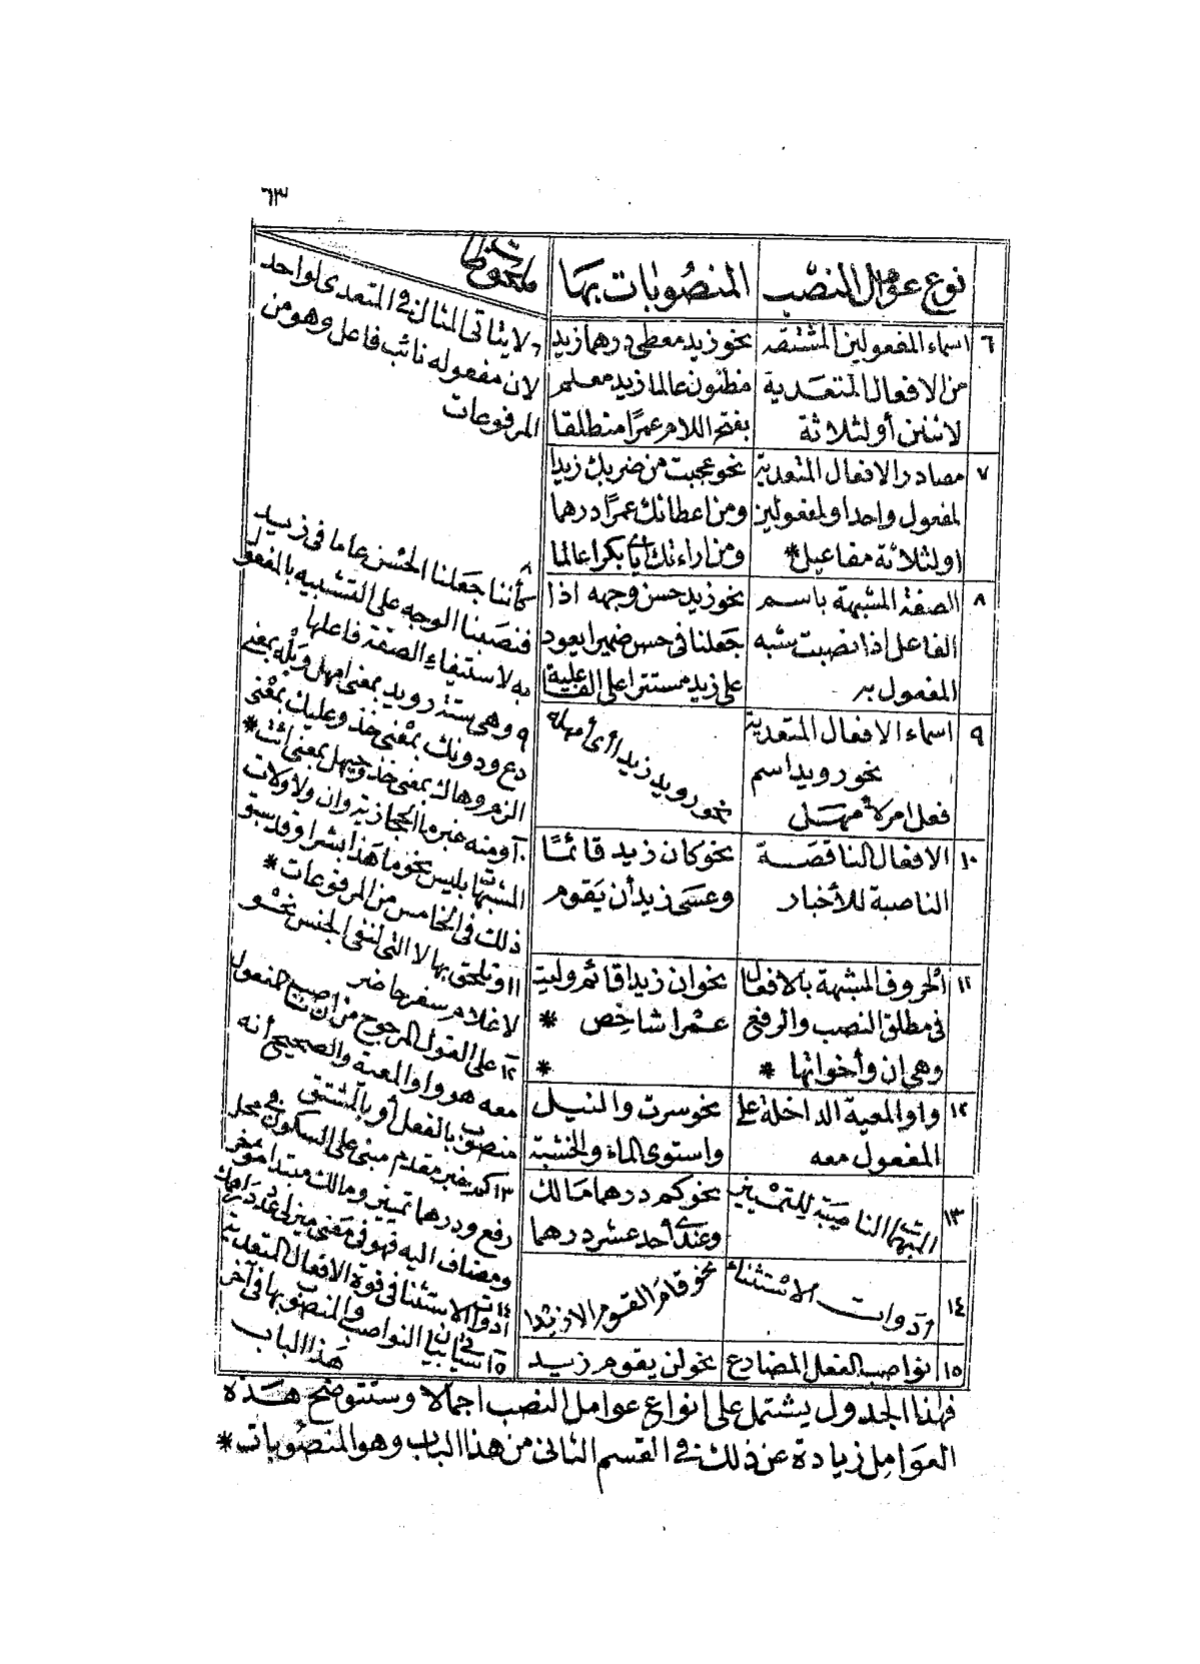 ٦٣
نوع عوامل النصب
المنصوبات بها
ملحوظات
٦
اسماء المفعولين المشتقة
من الافعال المتعدية
لاثنين أو لثلاثة
نحو زيد معطى درهما زيد
مظنون عالما زيد معلم
بفتح اللام عمرًا منطلقا
٦ ولا يتأتى المثال في المتعدى لواحد
لان مفعوله نائب فاعل وهو من
المرفوعات
٧
مصادر الافعال المتعدية
لمفعول واحد او لمفعولين
او لثلاثة مفاعيل *
نحو عجبت من ضربك زيدا
ومن اعطائك عمرًا درهما
ومن اراءتك بكرا عالما
٨
الصفة المشبهة باسم
الفاعل اذا نصبت شبه
المفعول به
نحو زيد حسن وجهه اذا
جعلنا فى حسن ضميرا يعود
على زيد مستترا على الفاعلية
٨ كأننا جعلنا الحسن عاما فى زيد
فنصبنا الوجه على التشبيه بالمفعول
به لاستيفاء الصفة فاعلها
٩
اسماء الافعال المتعدية
نحو رويد اسم
فعل امر لأمهل
نحو رويد زيدا أى أمهله
٩ وهى ستة رويد بمعنى امهل وبله بمعنى
دع ودونك بمعنى خذ وعليك بمعنى
الزم وهاك بمعنى خذ وحيهل بمعنى ائت *
١٠
الافعال الناقصة
الناصبة للأخبار
نحو كان زيد قائمًا
وعسى زيد أن يَقوم
١٠ ومنه خبر ما الحجازية وان ولا ولات
المشبهات بليس نحو ما هذا بشرا وقد سبق
ذلك فى الخامس من المرفوعات *
١١
الحروف المشبهة بالافعال
فى مطلق النصب والرفع
وهى ان وأخواتها *
نحو ان زيدا قائم وليت
عمرا شاخص *
*
١١ وتلحق بها لا التى لنفى الجنس نحو
لا غلام سفر حاضر
١٢
واو المعية الداخلة على
المفعول معه
نحو سرت والنيل
واستوى الماء والخشبة
١٢ على القول المرجوح من ان ناصب المفعول
معه هو واو المعية والصحيح أنه
منصوب بالفعل أو بالمشتق
١٣
المبهمات الناصبة للتمييز
نحو كم درهما مَالك
وعندى أحد عشر درهما
١٣ كم خبر مقدم مبنى على السكون فى محل
رفع ودرهما تمييز ومالك مبتدا مؤخر
ومضاف اليه فهو فى معنى
١٤
أدوات الاستثناء
نحو قام القوم الا زيدا
١٤ أدوات الاستثنا فى قوة الافعال المتعدية
١٥
نواصب الفعل المضارع
نحو لن يقوم زيد
١٥ سيأتى بيان النواصب والمنصوب بها فى آخر
هذا الباب
فهذا الجدول يشتمل على انواع عوامل النصب اجمالا وستتوضح هَذه
العوَامِل زيادة عن ذلك فى القسم الثانى من هذا الباب وهو المنصُوبات *